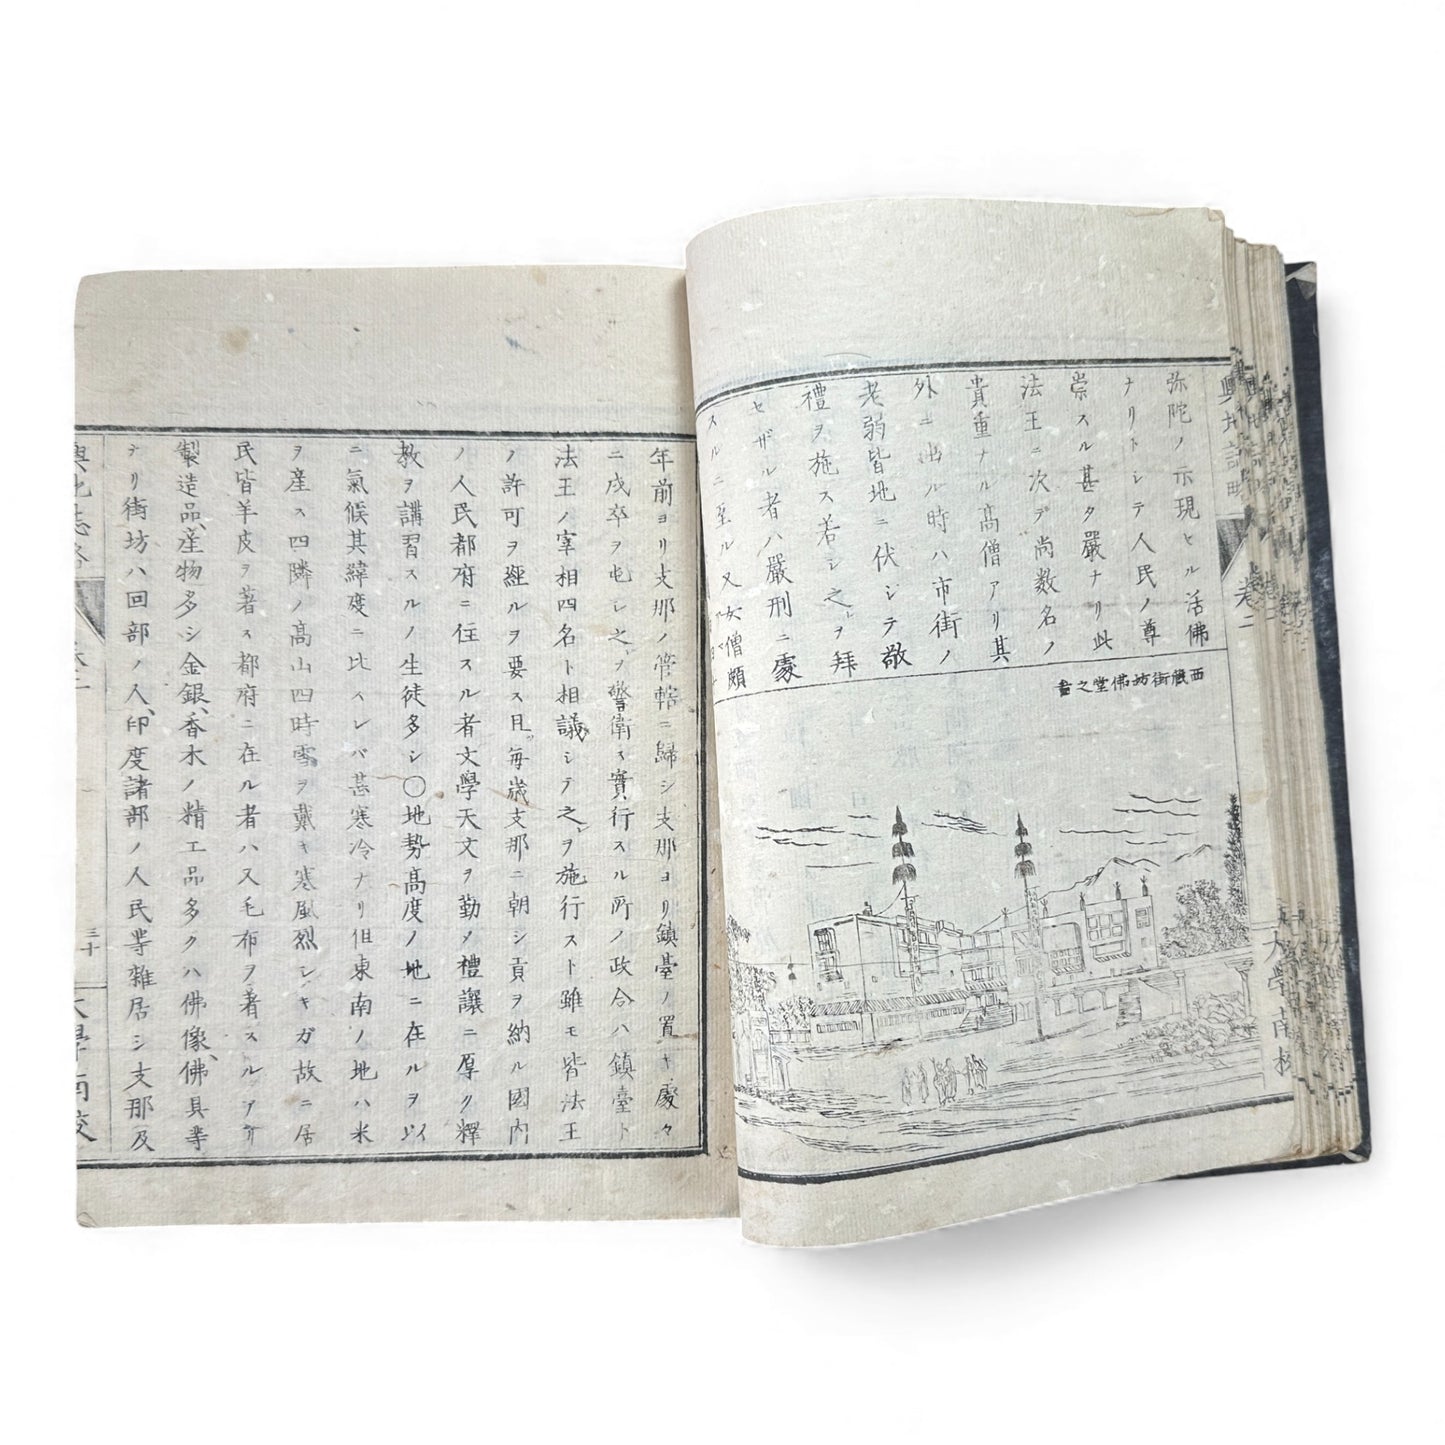 輿地誌略
卷二
大學南校
弥陀ノ示現セル活佛
ナリトシテ人民ノ尊
崇スル甚タ嚴ナリ此
法王ニ次デ尚数名ノ
貴重ナル高僧アリ其
外ニ出ル時ハ市街ノ
老弱皆地ニ伏シテ敬
禮ヲ施ス若シ之ヲ拜
セザル者ハ嚴刑ニ處
スルニ至ル又女僧頗
西藏街坊佛堂之畫
年前ヨリ支那ノ管轄ニ歸シ支那ヨリ鎮臺ノ置キ處々
ニ戍卒ヲ屯シ之ヲ警衛ス實行スル所ノ政令ハ鎮臺ト
法王ノ宰相四名ト相議シテ之ヲ施行スト雖モ皆法王
ノ許可ヲ經ルヲ要ス且毎歳支那ニ朝シ貢ヲ納ル國内
ノ人民都府ニ住スル者文學天文ヲ勤メ禮讓ニ厚ク釋
教ヲ講習スルノ生徒多シ〇地勢高度ノ地ニ在ルヲ以
ニ氣候其緯度ニ比スレバ甚寒冷ナリ但東南ノ地ハ米
ヲ産ス四隣ノ高山四時雪ヲ戴キ寒風烈シキガ故ニ居
民皆羊皮ヲ著ス都府ニ在ル者ハ又毛布ヲ著スルアリ
製造品、産物多シ金銀、香木ノ精工品多クハ佛像、佛具等
ナリ街坊ハ回部ノ人、印度諸部ノ人民等雜居シ支那及
輿地誌略
三十
大學南校